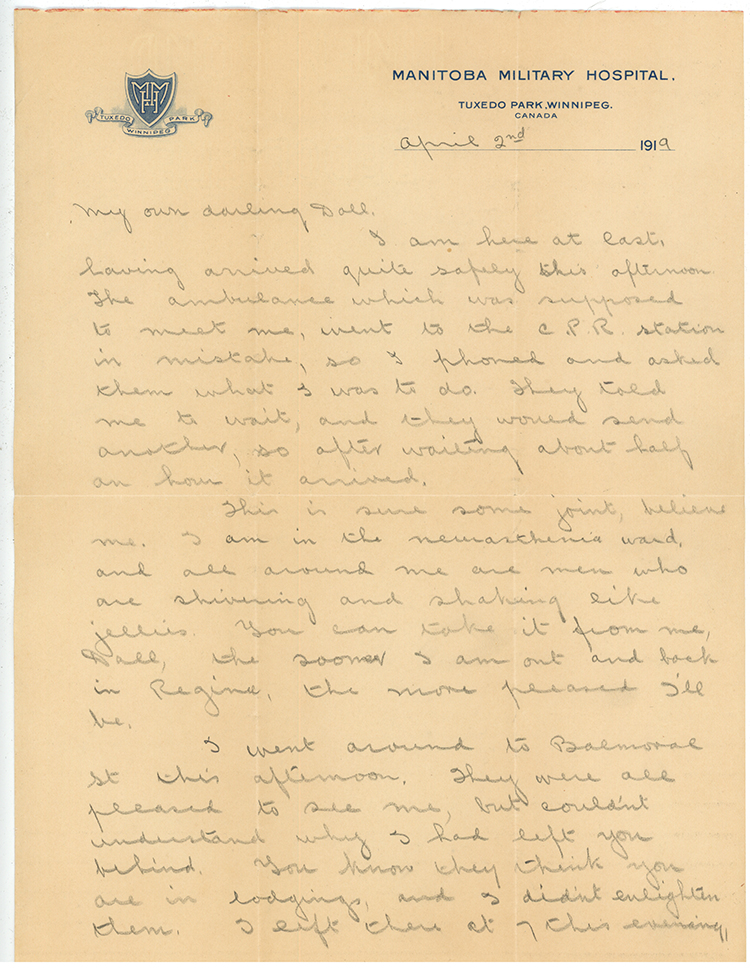 MANITOBA MILITARY HOSPITAL.
MHM
TUXEDO PARK
WINNIPEG
TUXEDO PARK, WINNIPEG.
CANADA
April 2nd 1919
My own darling Doll.
I am here at last,
having arrived quite safely this afternoon.
The ambulance which was supposed
to meet me, went to the C.P.R. station
in mistake, so I phoned and asked
them what I was to do. They told
me to wait, and they would send
another, so after waiting about half
an hour it arrived.
This is sure some joint, believe
me. I am in the neurasthenia ward,
and all around me are men who
are shivering and shaking like
jellies. You can take it from me,
Doll, the sooner I am out and back
in Regina, the more pleased I'll
be.
I went around to Balmoral
St this afternoon. They were all
pleased to see me, but couldn't
understand why I had left you
behind. You know they think you
are in lodgings, and I didn't enlighten
them. I left there at 7 this evening,